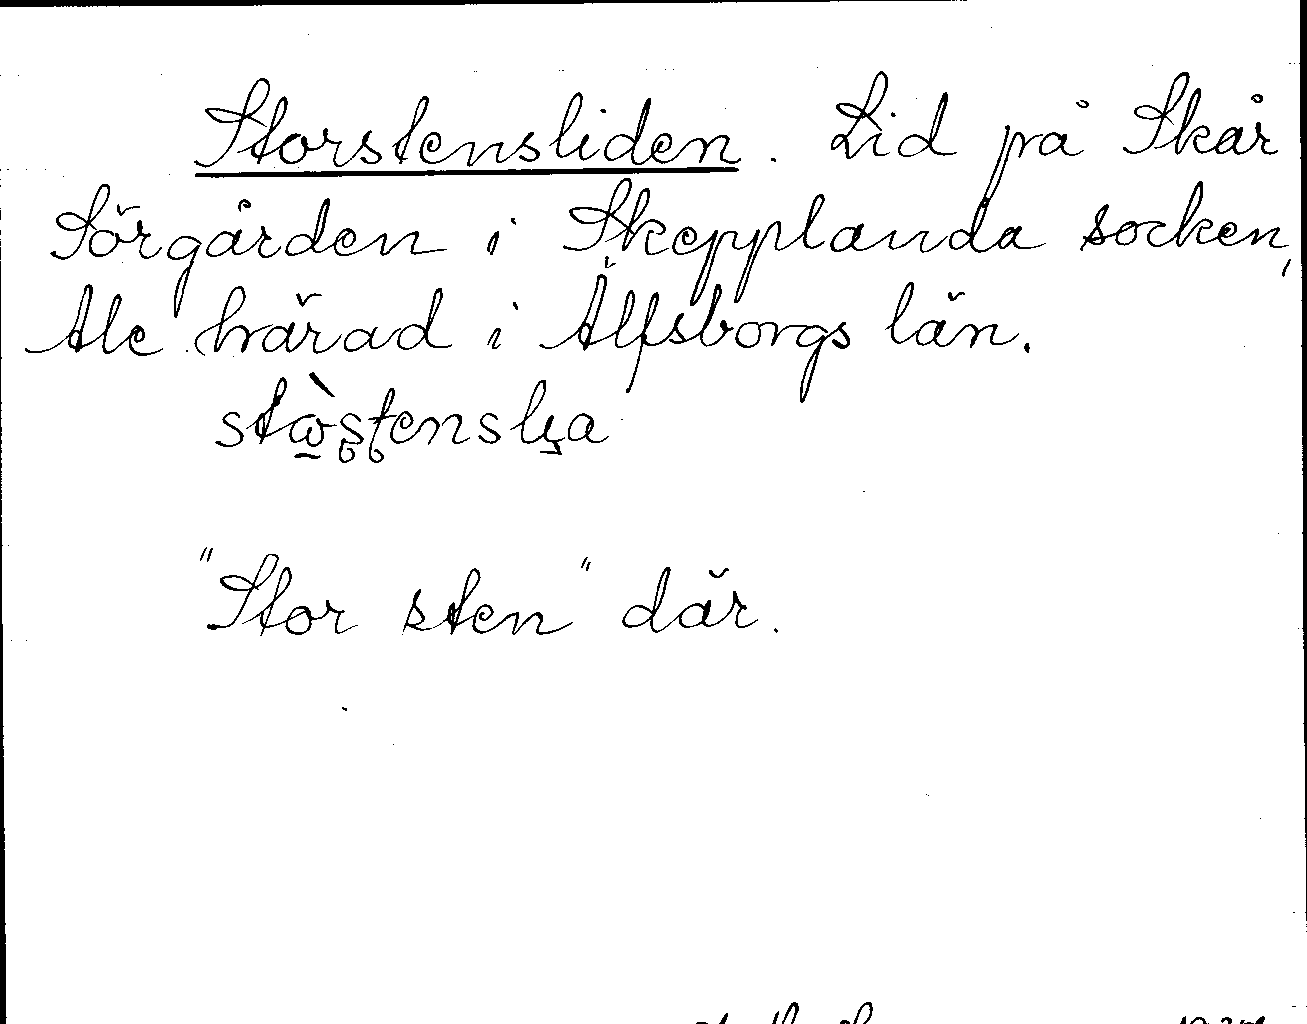 Storstensliden. Lid på Skår
Sörgården i Skepplanda socken,
Ale härad i Älfsborgs län.
"Stor sten" där.